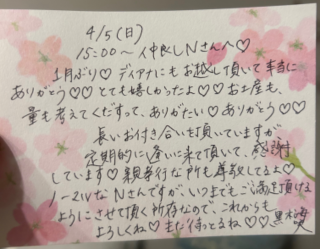 4/5(日)
15:00〜仲良しNさんへ♡
1月ぶり♡ディアナにもお越し頂いて本当に
ありがとう♡♡とても嬉しかったよ♡♡お土産も、
量も考えてくだすって、ありがたい♡ありがとう♡♡
長いお付き合いを頂いていますが
定期的に逢いに来て頂いて、感謝
しています♡親孝行な所も尊敬してるよ♡
ノーマルなNさんですが、いつまでもご満足頂ける
ようにさせて頂く所存なので、これからも
よろしくね♡また待ってるね♡♡黒木